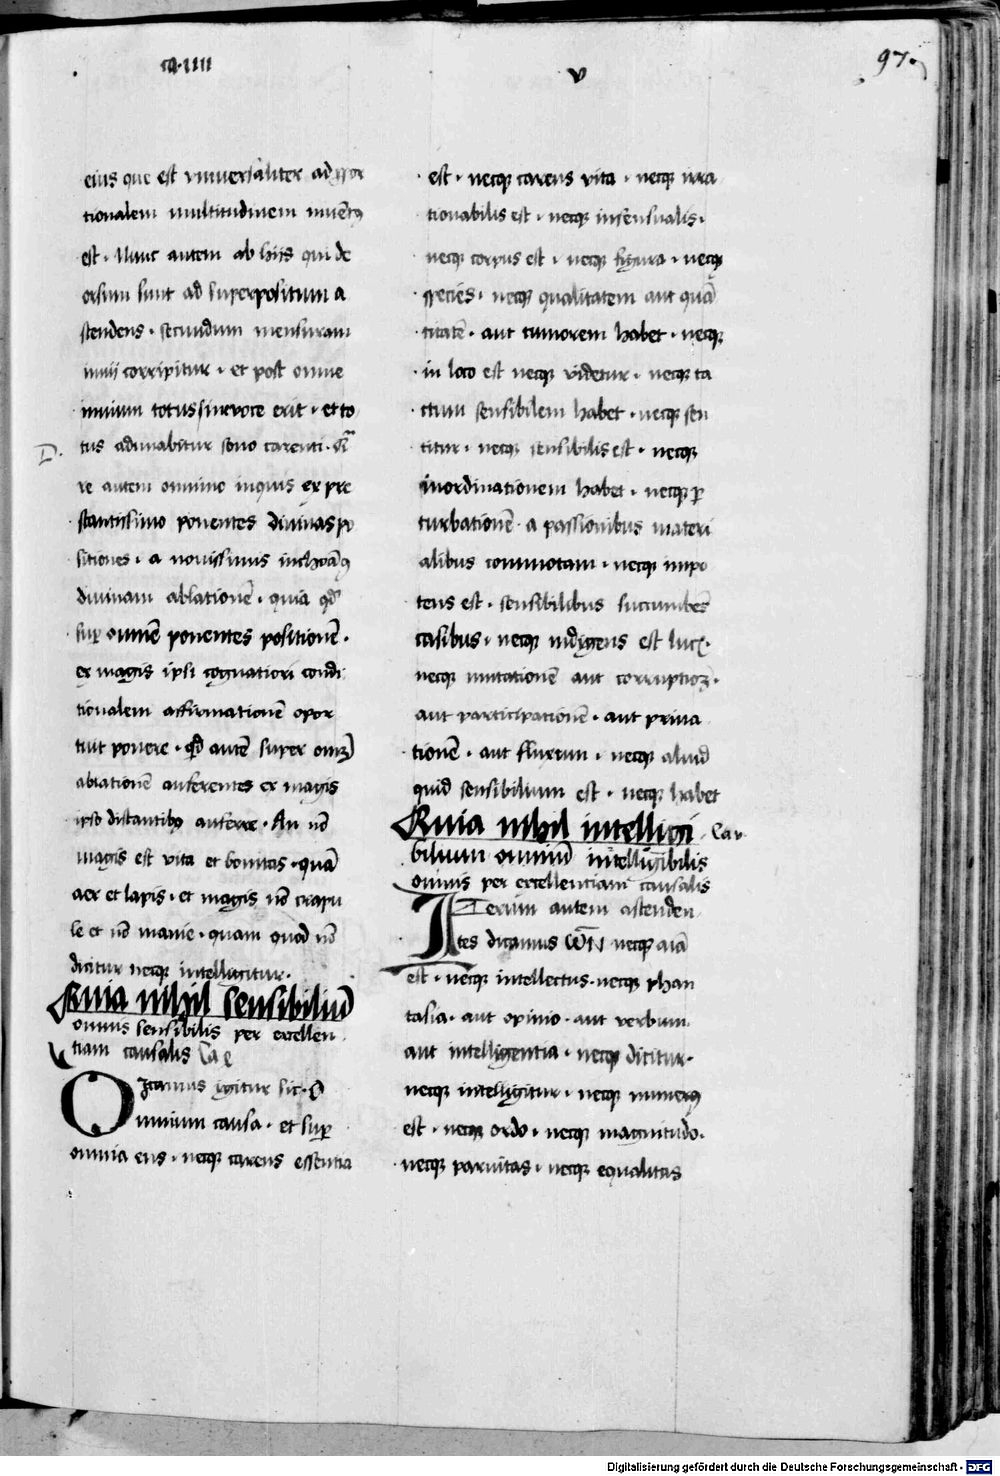 ca·iiii
v
97.
eius que est vniuersaliter ad ppor
tionalem multitudinem inuētꝰ
est · Nunc autem ab hiis qui de
orsum sunt ad superpositum a
stendens · secundum mensuram
inuii corripitur · et post omne
inuium totus sine voce erit · et to
D.
tus adunabitur sono carenti · Qͣ
re autem omnino inquis ex pre
stantissimo ponentes diuinas po
sitiones · a nouissimis inchoamꝰ
diuinam ablationē · quia qd̄
suꝑ omnē ponentes positionē ·
ex magis ipsi cognatiori condi
tionalem affirmationē opor
tuit ponere · qd̄ autē super omēꝫ
ablationē auferentes ex magis
ipso distantibꝰ auferre · An nō
magis est vita et bonitas · quā
aer et lapis · et magis nō crapu
le et nō manie · quam quod nō
dicitur neqꝫ intelligitur ·
Quia nihil sensibiliū
omnis sensibilis per excellen
tiam causalis Ca
Dicamus igitur sic · O
mnium causa · et suꝑ
omnia ens · neqꝫ carens essentia
est · neqꝫ carens vita · neqꝫ irra
tionabilis est · neqꝫ insensualis ·
neqꝫ corpus est · neqꝫ figura · neqꝫ
species · neqꝫ qualitatem aut quā
titatē · aut tumorem habet · neqꝫ
in loco est neqꝫ videtur · neqꝫ ta
ctum sensibilem habet · neqꝫ sen
titur · neqꝫ sensibilis est · neqꝫ
inordinationem habet · neqꝫ ꝑ
turbationē · a passionibus materi
alibus commotam · neqꝫ impo
tens est · sensibilibus succumbēs
casibus · neqꝫ indigens est luc̄ ·
neqꝫ mutationē aut corruptioꝫ ·
aut participationē · aut priua
tionē · aut fluxum · neqꝫ aliud
quid sensibilium est · neqꝫ habet
Quia nihil intelligi Ca v
bilium omniū intelligibilis
omnis per excellentiam causalis
Iterum autem astenden
tes dicamus ωN neqꝫ aīa
est · neqꝫ intellectus · neqꝫ phan
tasia · aut opinio · aut verbum
aut intelligentia · neqꝫ dicitur ·
neqꝫ intelligitur · neqꝫ numerꝰ
est · neqꝫ ordo · neqꝫ magnitudo ·
neqꝫ paruitas · neqꝫ equalitas
Digitalisierung gefördert durch die Deutsche Forschungsgemeinschaft · DFG